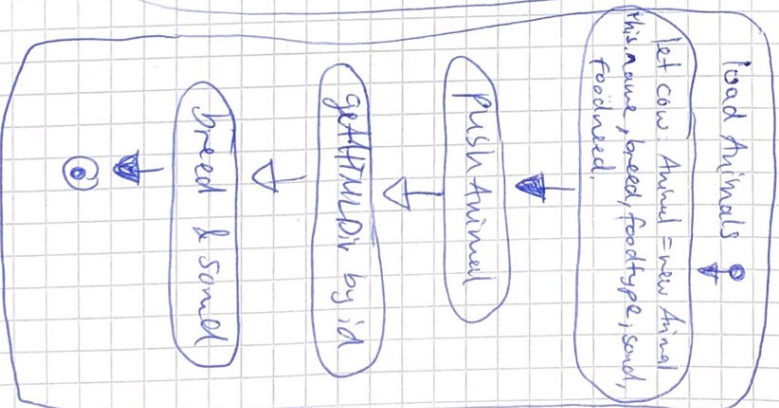 load Animals
let cow: Animal = new Animal
this.name, breed, foodtype, sound,
foodneed.
push Animal
getHTMLDiv by id
breed & sound